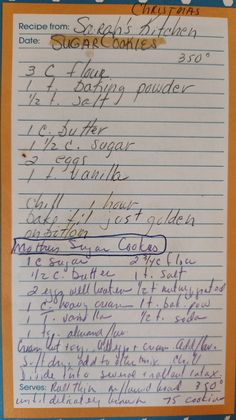 CHRISTMAS
Recipe from: Sarah's Kitchen
Date: SUGAR COOKIES
350°
3 c flour
1 t. baking powder
1/2 t. salt
1 c. butter
1 1/2 c. sugar
2 eggs
1 t vanilla
chill 1 hour
bake til just golden
on bottom
Mothers Sugar Cookies
1 c sugar 2 flour
1/2 c. butter 1 t. salt
2 egg well beaten 1/2 t nutmeg
1 c heavy cream 1 t. bak. pow
1 T. vanilla 1/2 t. soda
1 tsp. almond
Cream but + sy. eggs + cream add
add to the mix
into several + rollout
Serves: Roll thin on floured board 350°
until delicately brown 75 cookies